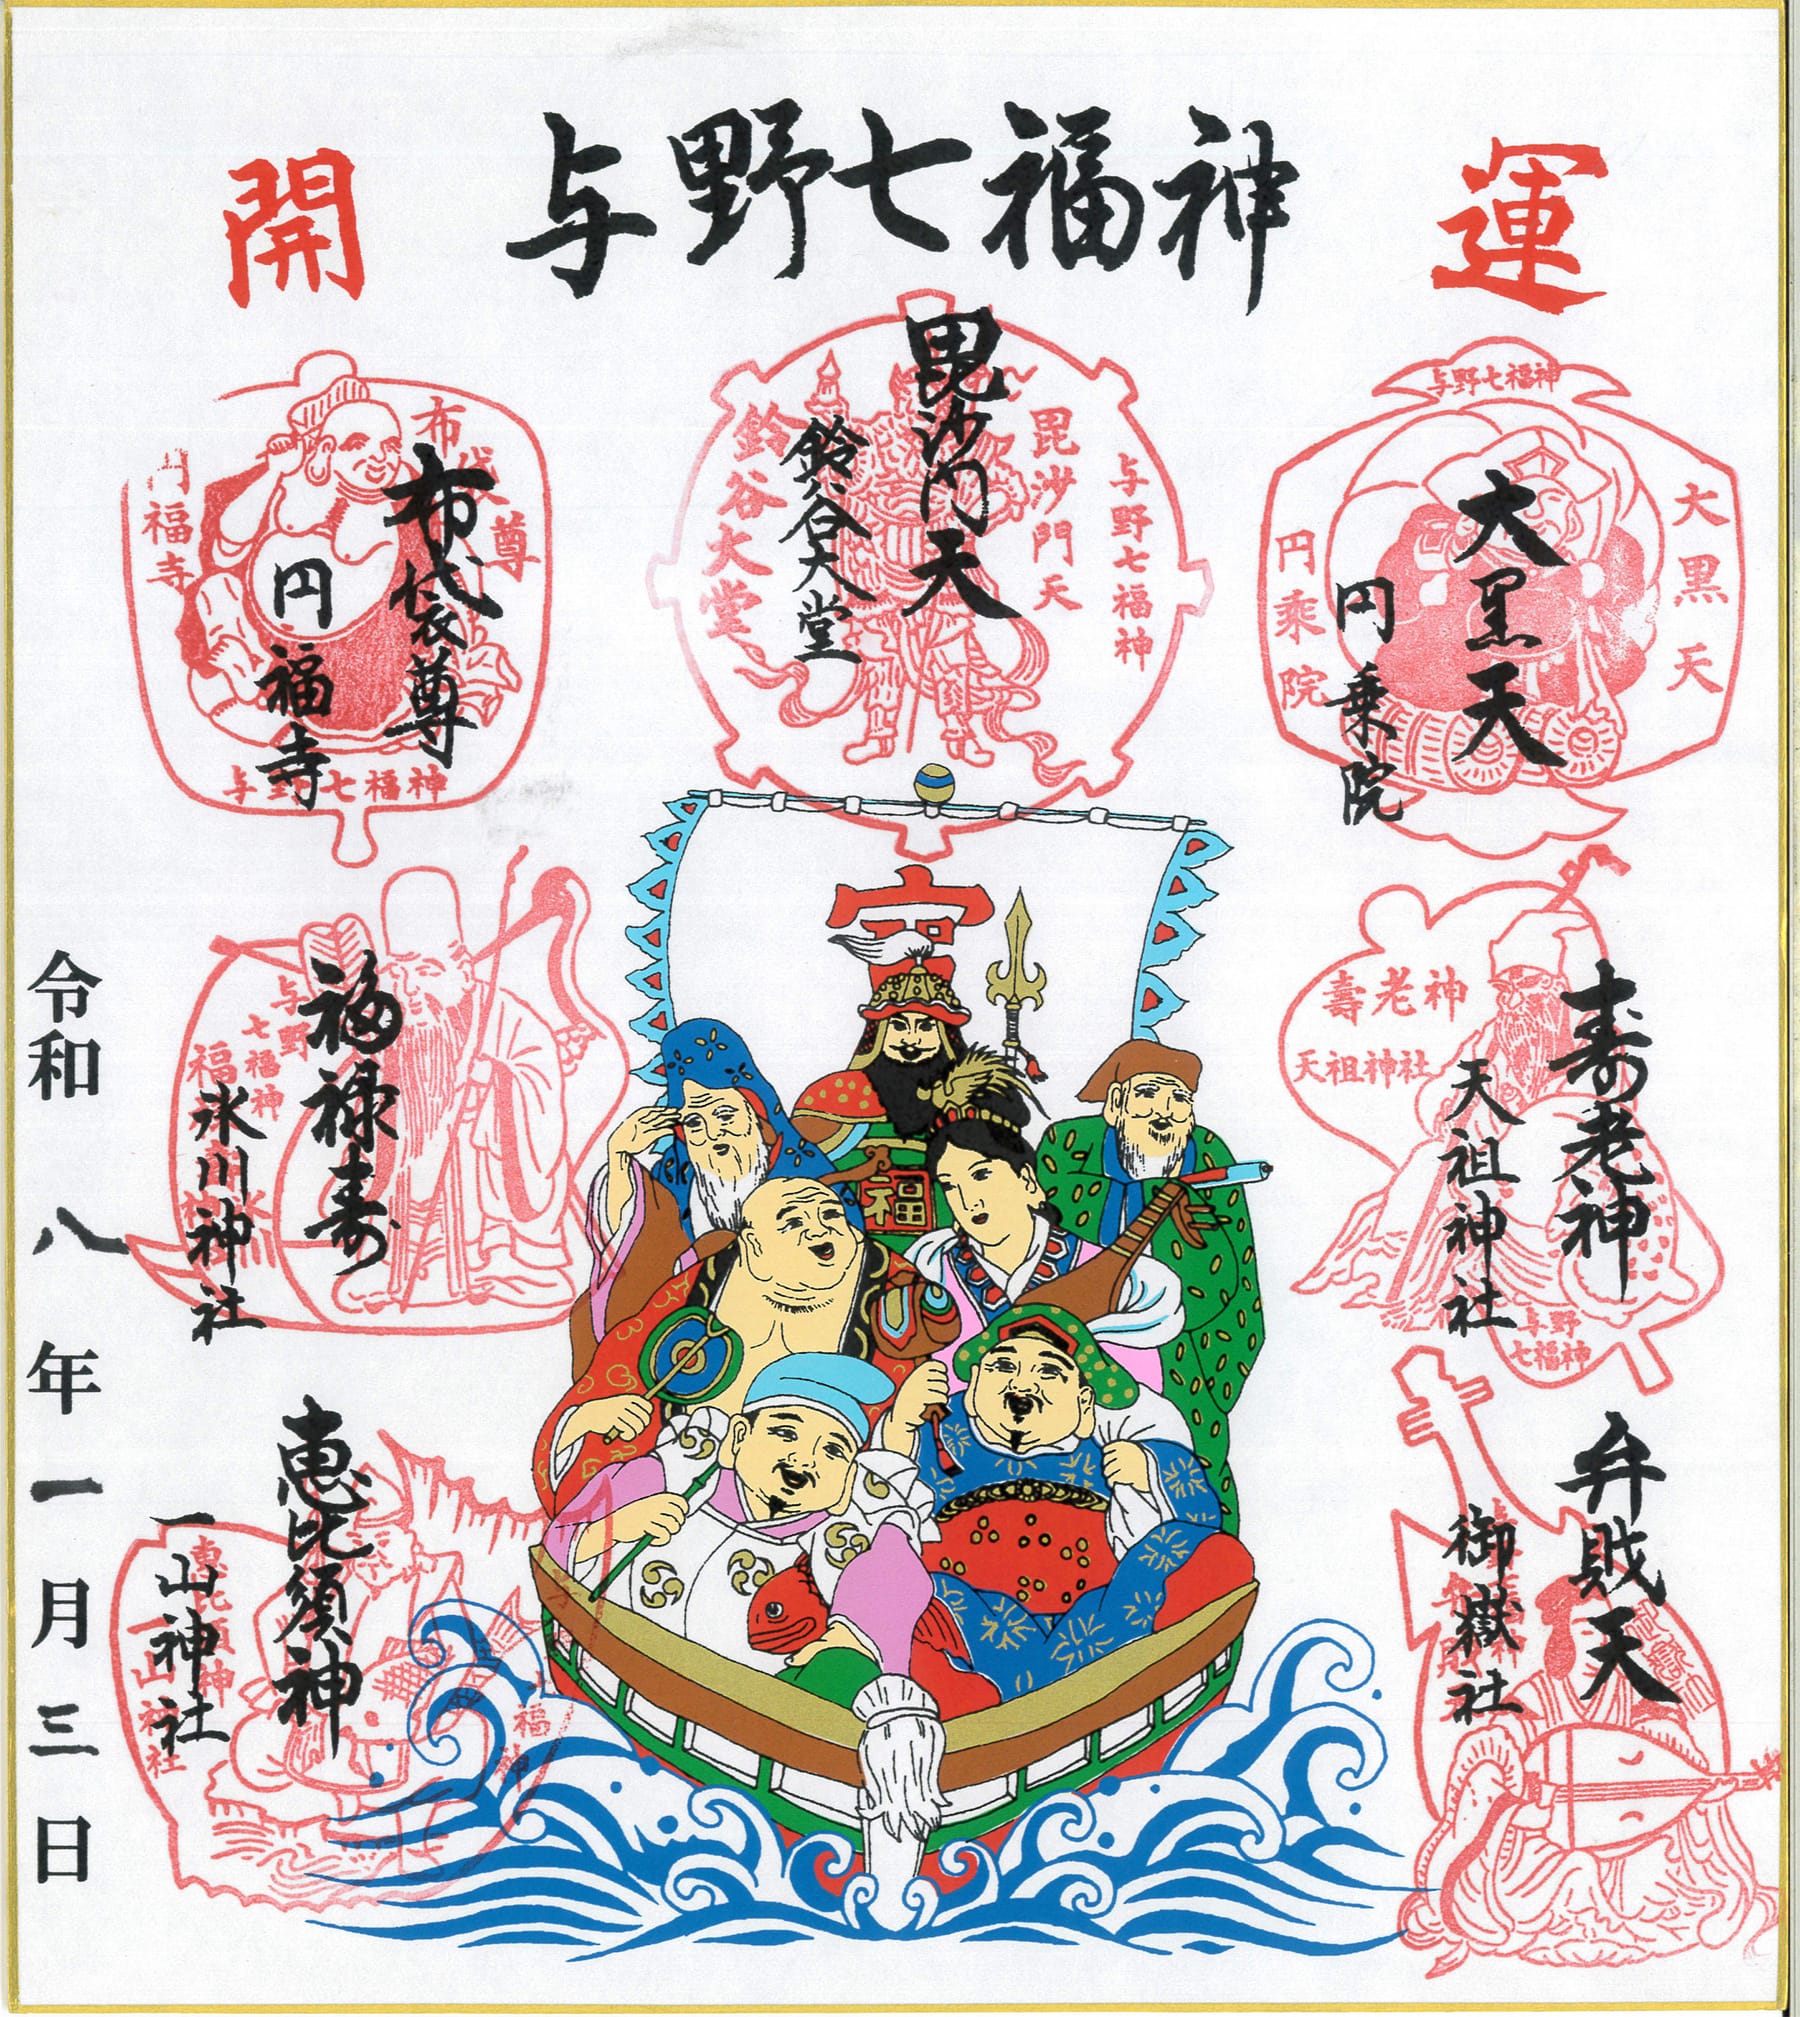 開 与野七福神 運
与野七福神
大黒天
円乗院
大黒天
円乗院
毘沙門天
鈴谷大堂
与野七福神
毘沙門天
鈴谷大堂
布袋尊
円福寺
布袋尊
円福寺
与野七福神
寿老神
天祖神社
壽老神
天祖神社
与野
七福神
福禄寿
氷川神社
与野
七福神
福
弁戝天
御嶽社
恵比須神
一山神社
恵比須神
一山神社
福神
福
令和八年一月三日